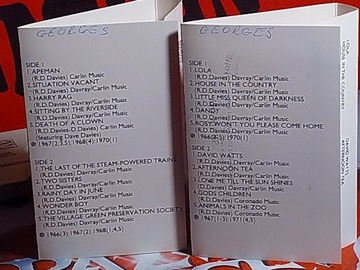 GEORGES
SIDE 1
1. APEMAN
(R.D.Davies) Carlin Music
2. SITUATION VACANT
(R.D.Davies) Davray/Carlin Music
3. HARRY RAG
(R.D.Davies) Davray/Carlin Music
4. SITTING BY THE RIVERSIDE
(R.D.Davies) Davray/Carlin Music
5. DEATH OF A CLOWN
(R.D.Davies-D.Davies) Carlin Music
(featuring Dave Davies)
℗ 1967(2,3,5) 1968(4) 1970(1)
SIDE 2
1. THE LAST OF THE STEAM-POWERED TRAINS
(R.D.Davies) Davray/Carlin Music
2. TWO SISTERS
(R.D.Davies) Davray/Carlin Music
3. RAINY DAY IN JUNE
(R.D.Davies) Davray/Carlin Music
4. WONDER BOY
(R.D.Davies) Davray/Carlin Music
5. THE VILLAGE GREEN PRESERVATION SOCIETY
(R.D.Davies) Davray/Carlin Music
℗ 1966(3) 1967(2) 1968(1,4,5)
GEORGES
SIDE 1
1. LOLA
(R.D.Davies) Davray/Carlin Music
2. HOUSE IN THE COUNTRY
(R.D.Davies) Davray/Carlin Music
3. LITTLE MISS QUEEN OF DARKNESS
(R.D.Davies) Davray/Carlin Music
4. DANDY
(R.D.Davies) Davray/Carlin Music
5. ROSY, WON'T YOU PLEASE COME HOME
(R.D.Davies) Davray/Carlin Music
℗ 1966(2-5) 1970(1)
SIDE 2
1. DAVID WATTS
(R.D.Davies) Davray/Carlin Music
2. AFTERNOON TEA
(R.D.Davies) Davray/Carlin Music
3. LOVE ME TILL THE SUN SHINES
(D.Davies) Davray/Carlin Music
4. GODS CHILDREN
(R.D.Davies) Coronado Music
5. ANIMALS IN THE ZOO
(R.D.Davies) Coronado Music
℗ 1967(1-3) 1971(4,5)
LOLA
HOUSE IN THE COUNTRY
DAVID WATTS
AFTERNOON TEA